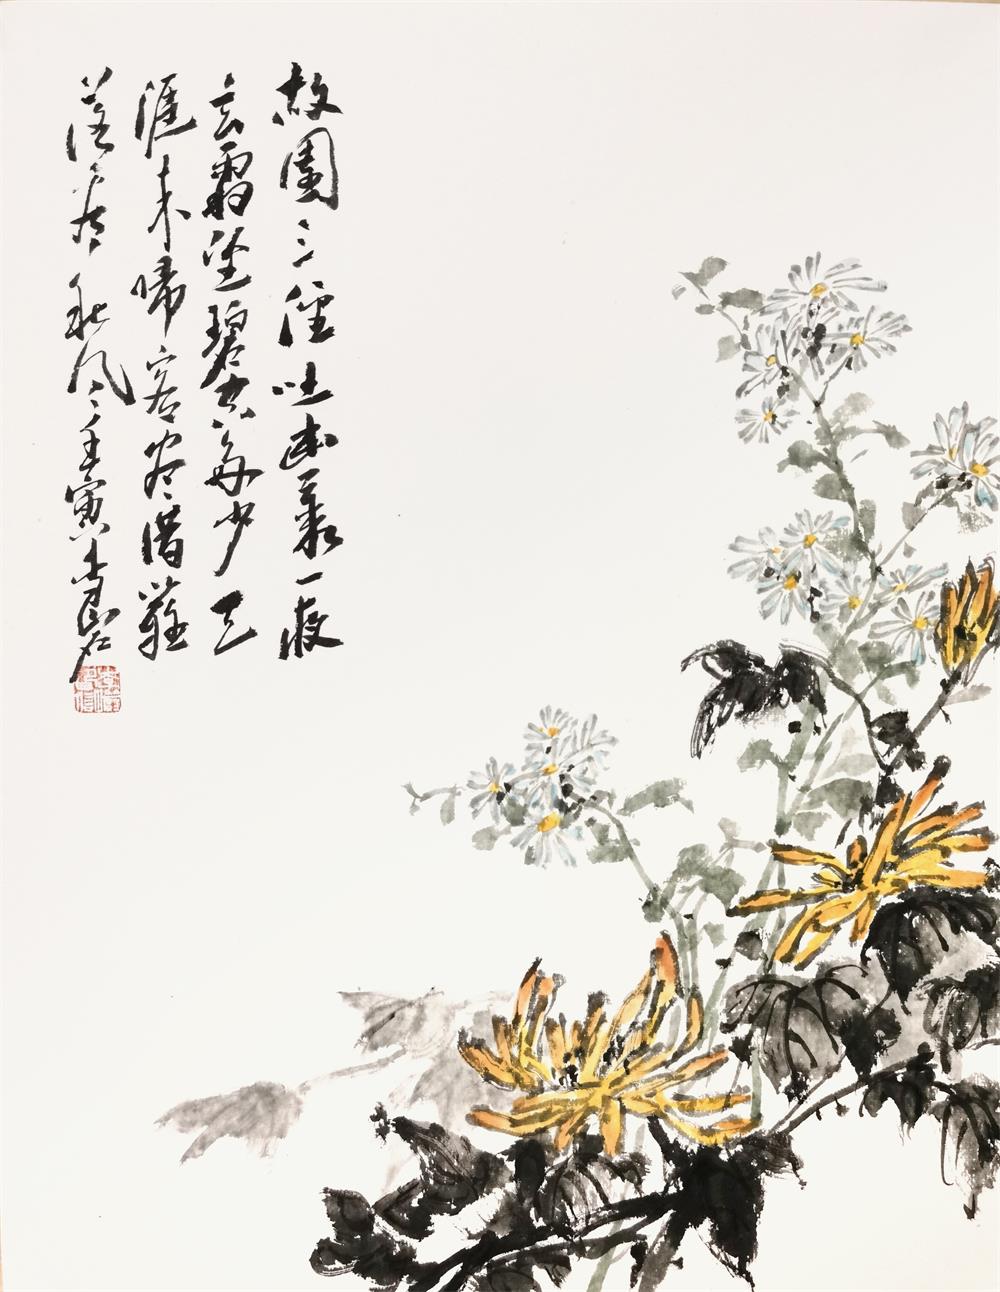 故園三徑吐幽叢一夜
玄霜墜碧空多少天
涯未歸客尽借籬
落看秋風壬寅